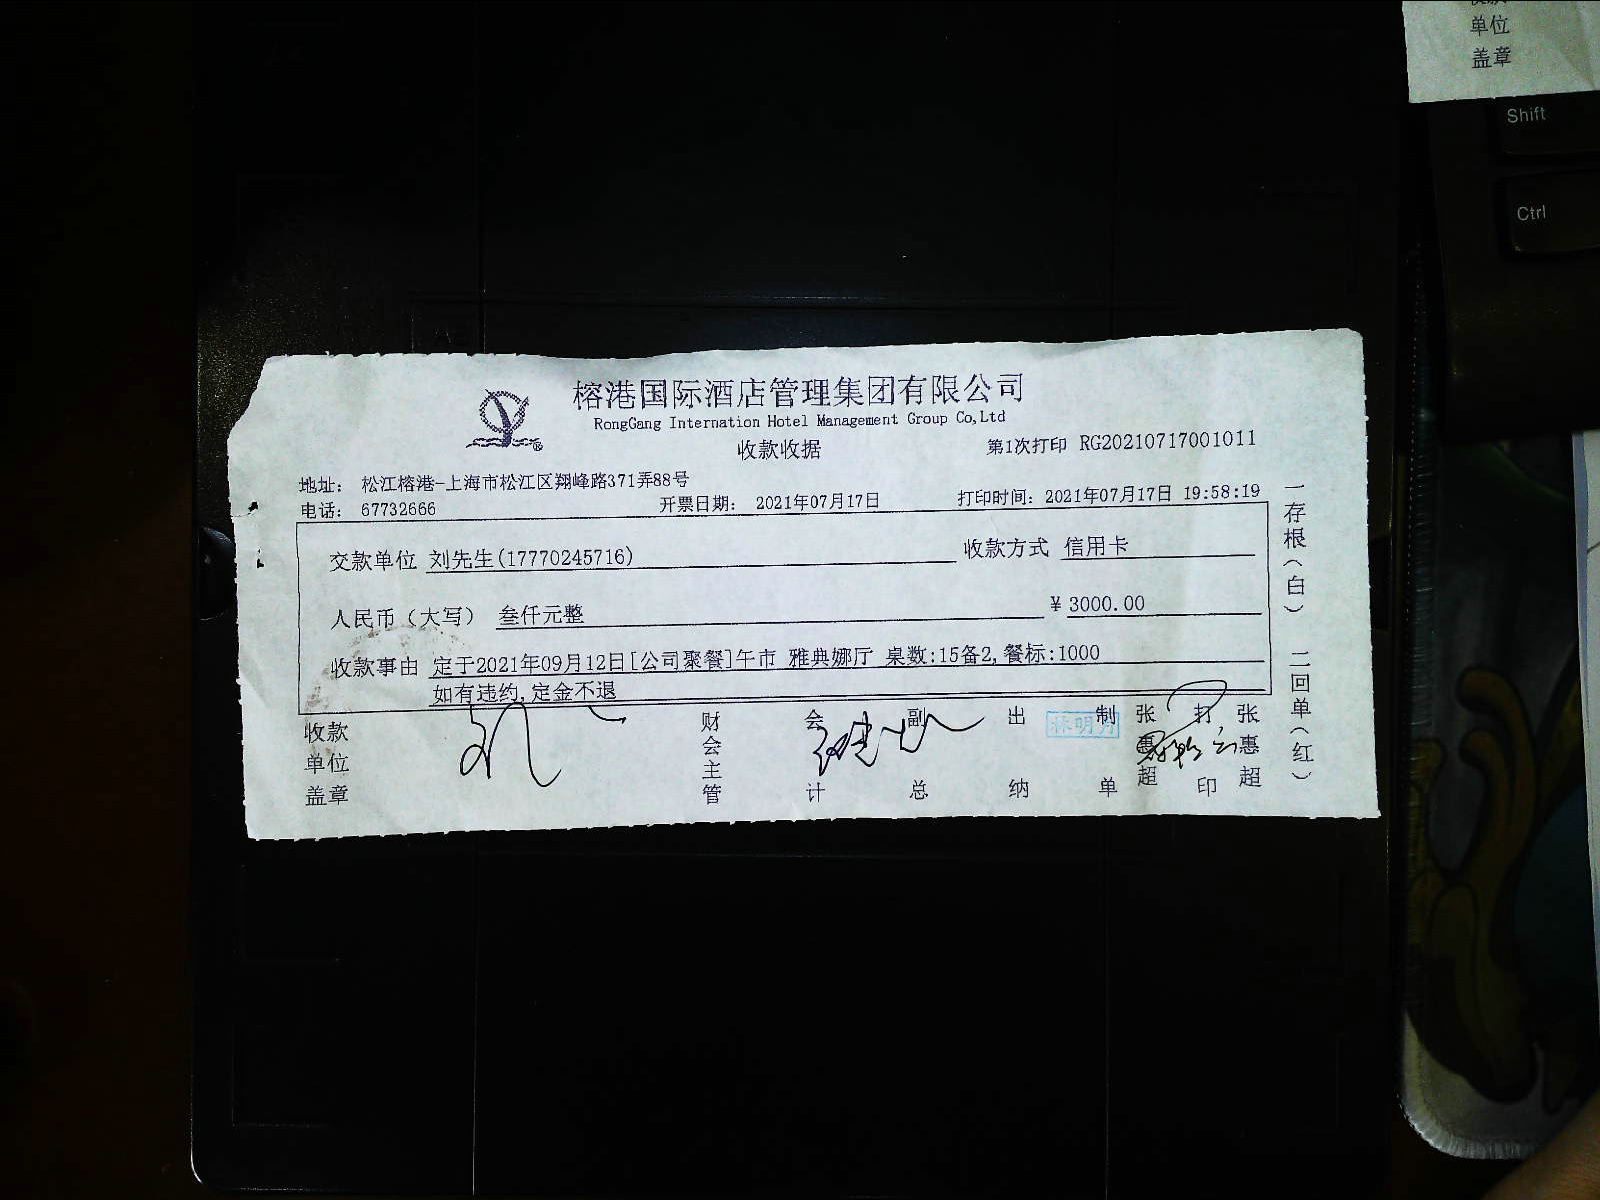 单位
盖章
Shift
Ctrl
榕港国际酒店管理集团有限公司
RongGang Internation Hotel Management Group Co,Ltd
收款收据
第1次打印 RG20210717001011
地址： 松江榕港-上海市松江区翔峰路371弄88号
电话： 67732666 开票日期： 2021年07月17日 打印时间： 2021年07月17日 19:58:19
交款单位 刘先生(17770245716) 收款方式 信用卡
人民币（大写） 叁仟元整 ￥ 3000.00
收款事由 定于2021年09月12日[公司聚餐]午市 雅典娜厅 桌数:15备2,餐标:1000
如有违约,定金不退
收款单位盖章 财会主管 会计 副总 出纳 制单 张惠超 打印 张惠超
一存根（白） 二回单（红）